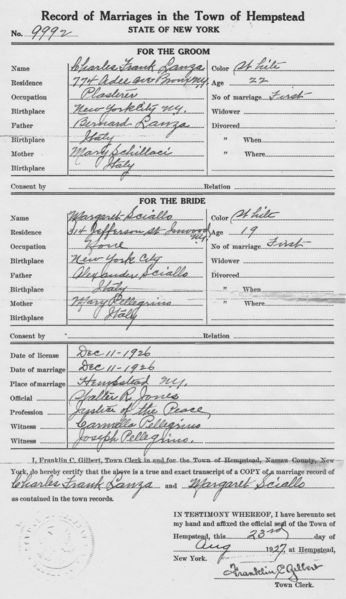 Record of Marriages in the Town of Hempstead
No. 9992 STATE OF NEW YORK
FOR THE GROOM
Name Charles Frank Lanza Color White
Residence 774 Adee Ave Bronx N.Y. Age 22
Occupation Plasterer No of marriage First
Birthplace New York City N.Y. Widower
Father Bernard Lanza Divorced
Birthplace Italy " When
Mother Mary Schillaci " Where
Birthplace Italy
Consent by Relation
FOR THE BRIDE
Name Margaret Sciallo Color White
Residence 314 Jefferson St Inwood N.Y. Age 19
Occupation None No of marriage First
Birthplace New York City Widower
Father Alexander Sciallo Divorced
Birthplace Italy " When
Mother Mary Pellegrino " Where
Birthplace Italy
Consent by Relation
Date of license Dec 11-1926
Date of marriage Dec 11-1926
Place of marriage Hempstead N.Y.
Official Walter R. Jones
Profession Justice of the Peace
Witness Carmello Pellegrino
Witness Joseph Pellegrino.
I, Franklin C. Gilbert, Town Clerk in and for the Town of Hempstead, Nassau County, New
York, do hereby certify that the above is a true and exact transcript of a COPY of a marriage record of
Charles Frank Lanza and Margaret Sciallo
as contained in the town records.
IN TESTIMONY WHEREOF, I have hereunto set
my hand and affixed the official seal of the Town of
Hempstead, this 23rd day of
Aug 1927, at Hempstead,
New York.
Franklin C. Gilbert
Town Clerk.